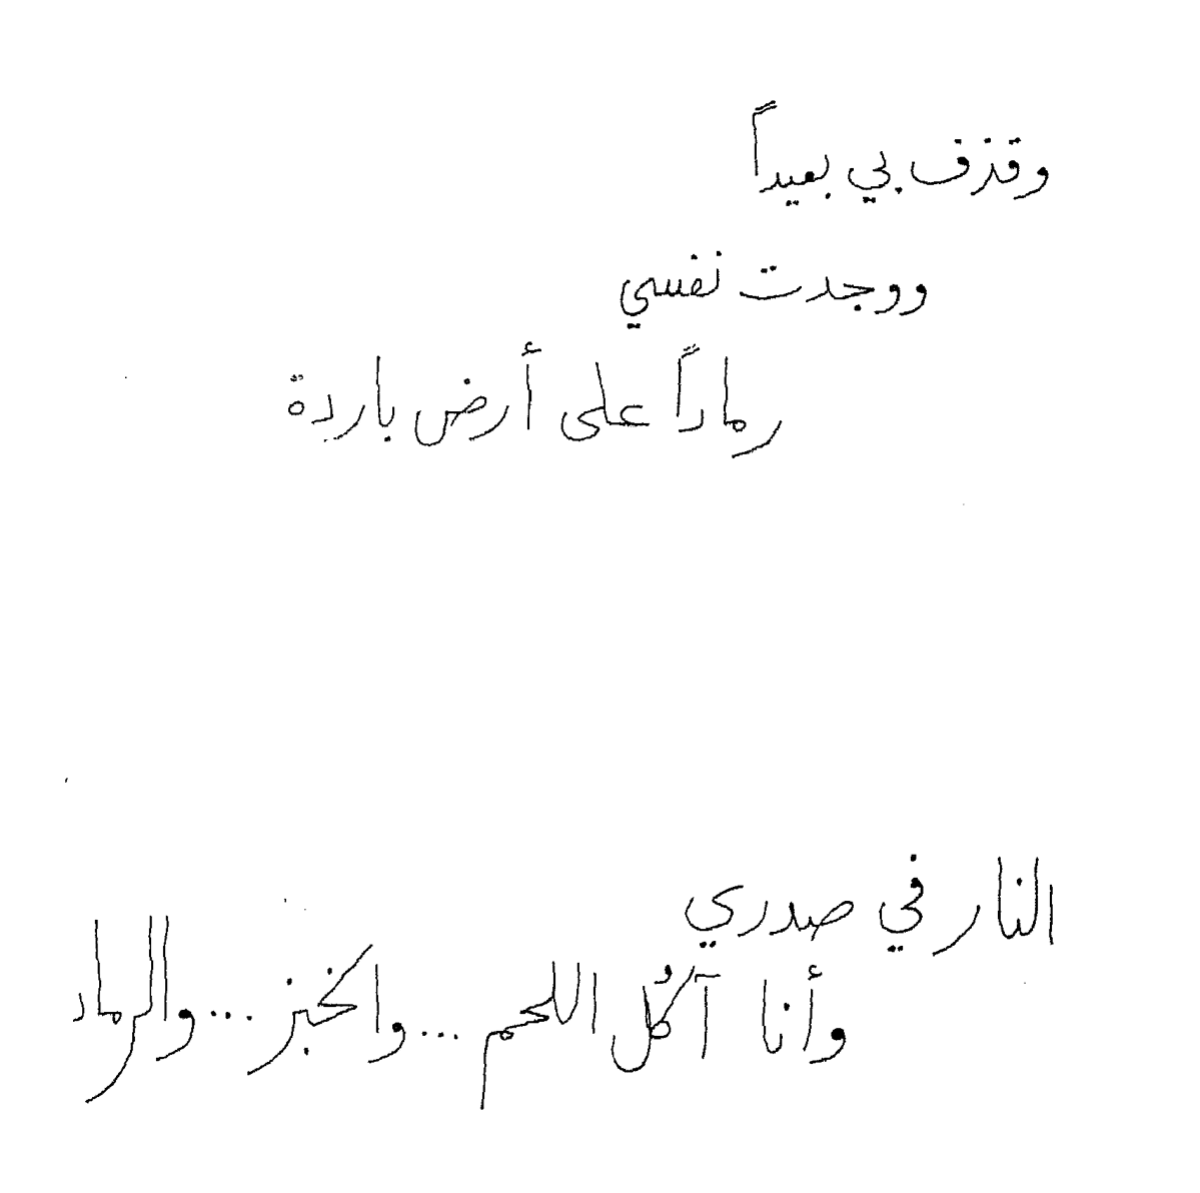 وقذف بي بعيداً
ووجدت نفسي
رماداً على أرض باردة
النار في صدري
وأنا آكُل اللحم ... والخبز ... والرماد